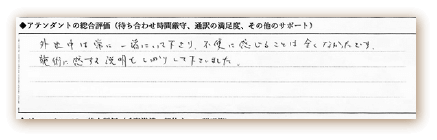 ◆アテンダントの総合評価(待ち合わせ時間厳守、通訳の満足度、その他のサポート)
外出中は常に一緒にいって下さり、不便に感じることは全くなかったです。
施術に関する説明もしっかりして下さいました。